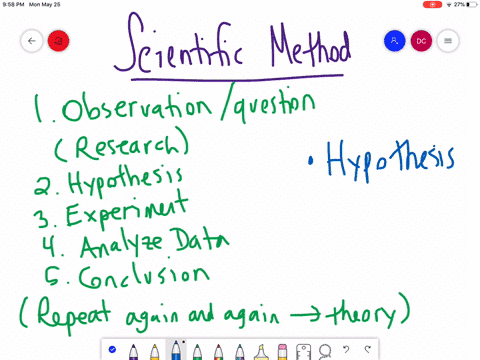 9:58 PM Mon May 25
27%
DC
Scientific Method
1. Observation/question
(Research)
• Hypothesis
2. Hypothesis
3. Experiment
4. Analyze Data
5. Conclusion
(Repeat again and again → theory)